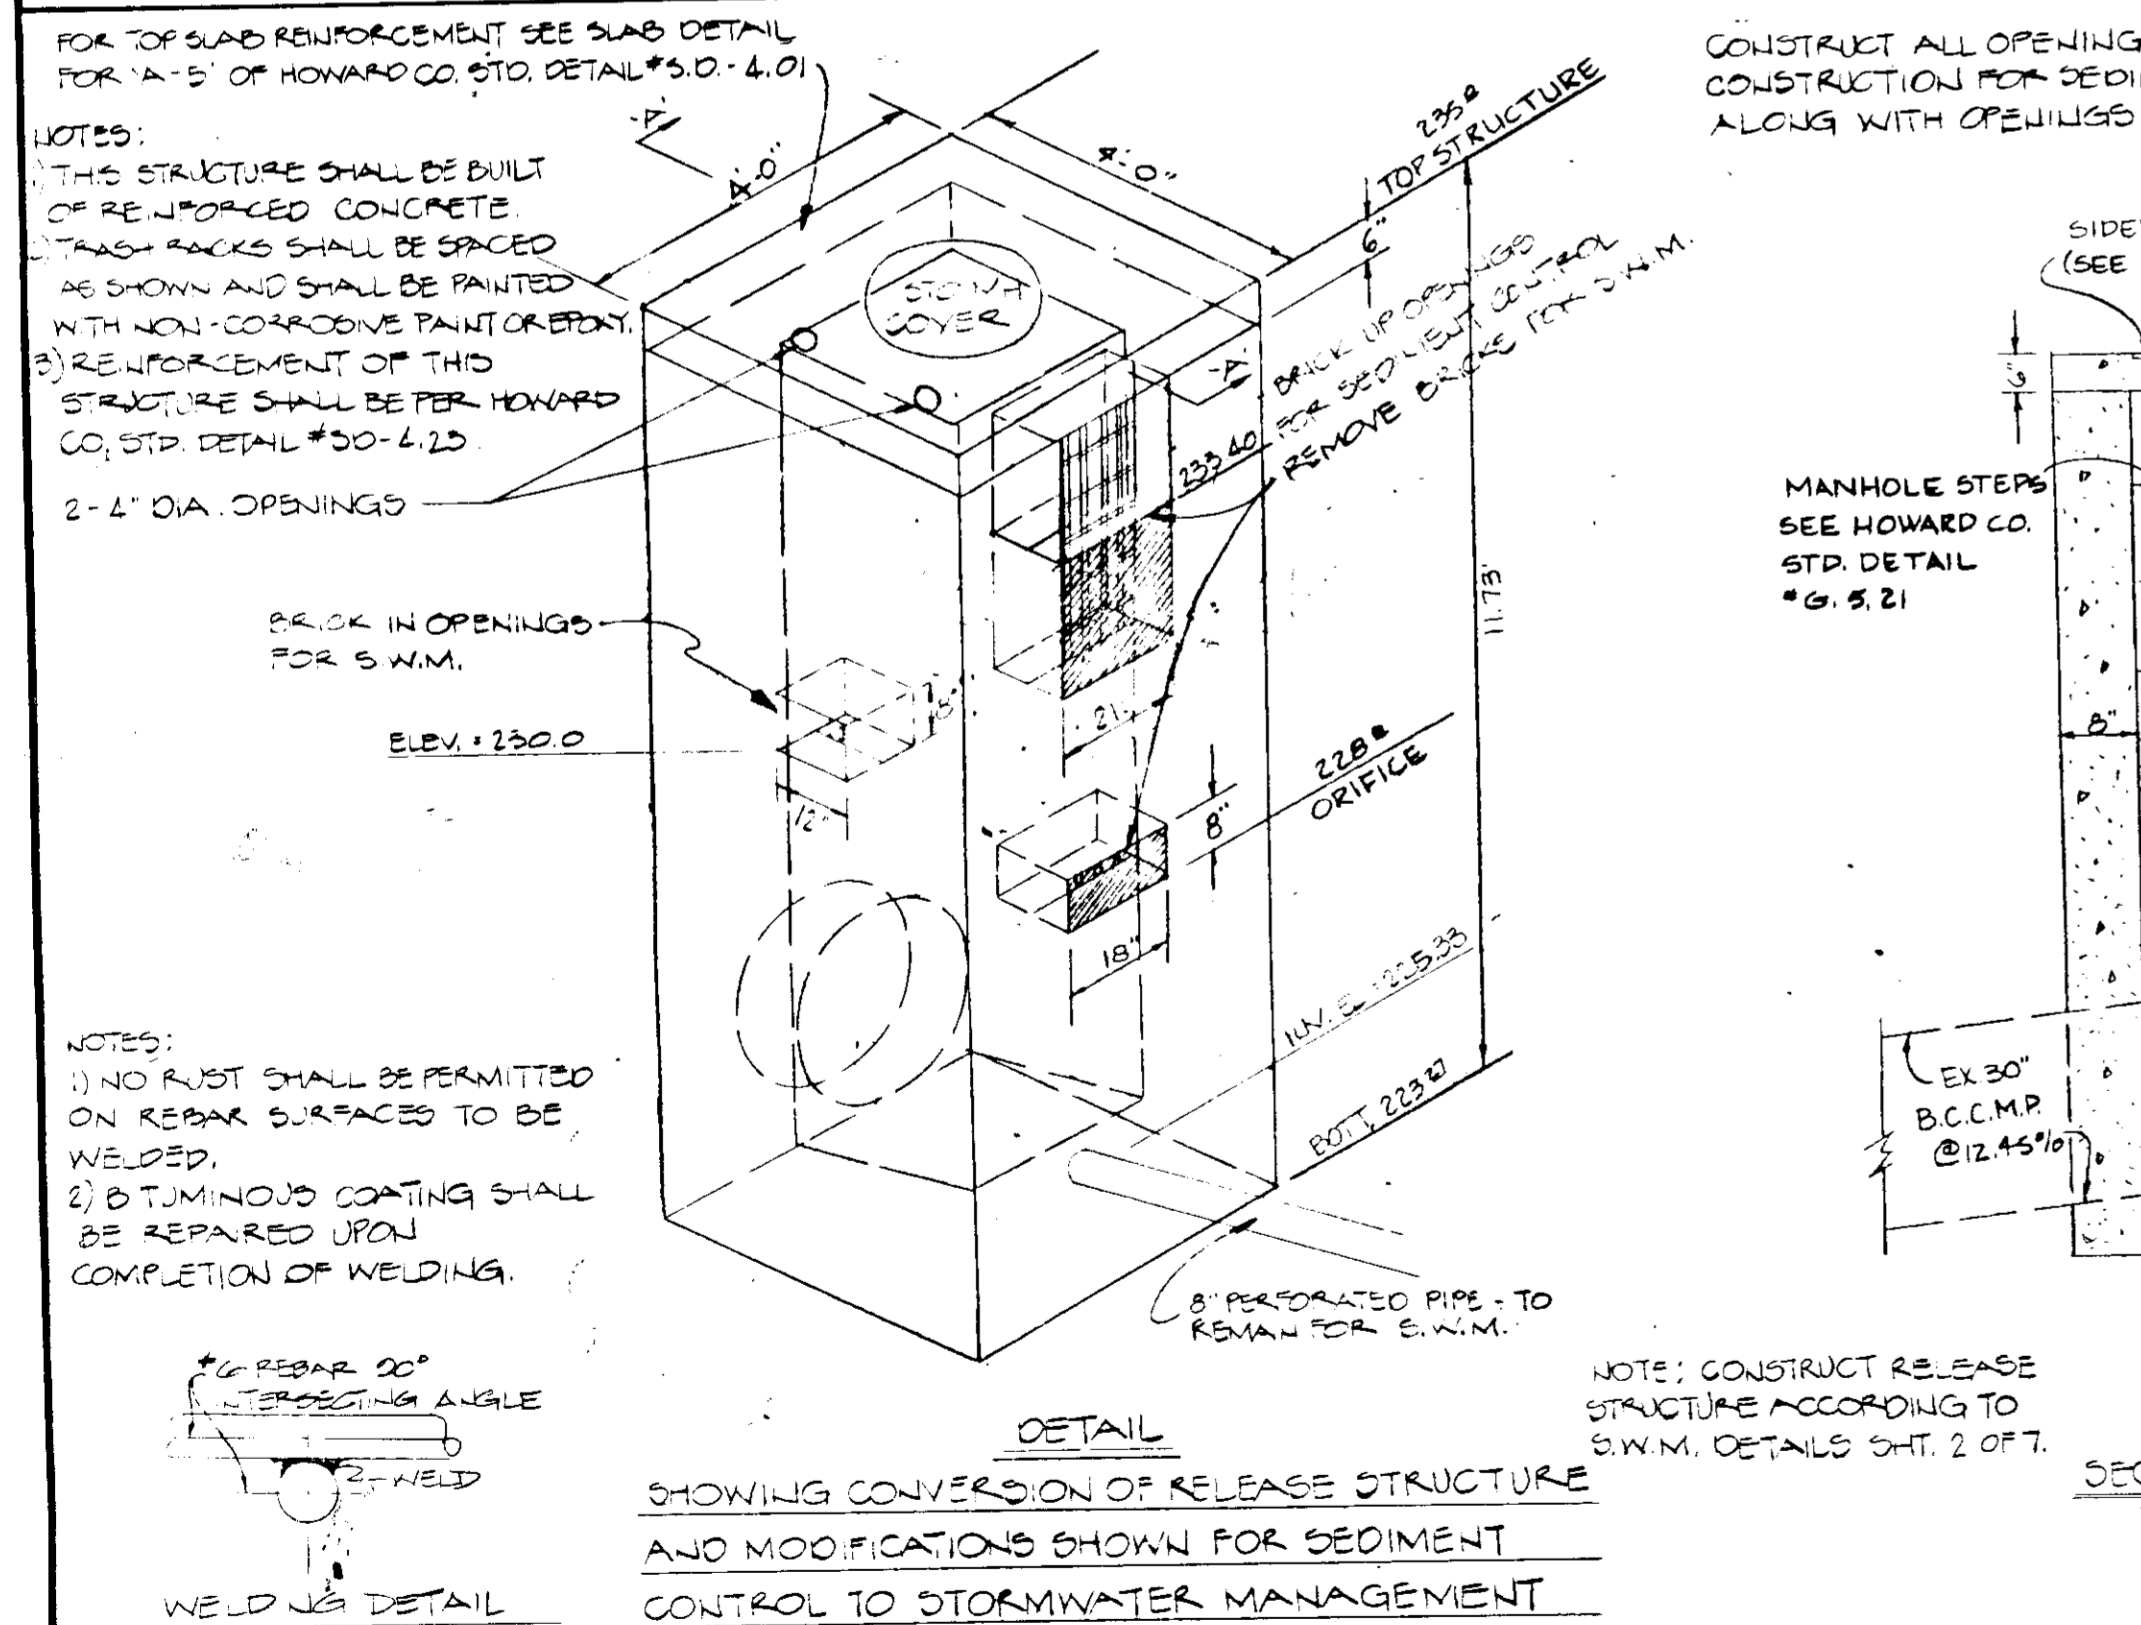 FOR TOP SLAB REINFORCEMENT SEE SLAB DETAIL
FOR 'A-5' OF HOWARD CO. STD. DETAIL #S.D.-4.01
NOTES:
1) THIS STRUCTURE SHALL BE BUILT
OF REINFORCED CONCRETE.
2) TRASH RACKS SHALL BE SPACED
AS SHOWN AND SHALL BE PAINTED
WITH NON-CORROSIVE PAINT OR EPOXY.
3) REINFORCEMENT OF THIS
STRUCTURE SHALL BE PER HOWARD
CO. STD. DETAIL #SD-4.23
2-4" DIA. OPENINGS
BRICK IN OPENINGS
FOR S.W.M.
ELEV. = 230.0
NOTES:
1) NO RUST SHALL BE PERMITTED
ON REBAR SURFACES TO BE
WELDED.
2) BITUMINOUS COATING SHALL
BE REPAIRED UPON
COMPLETION OF WELDING.
#6 REBAR 90°
INTERSECTING ANGLE
WELD
WELDING DETAIL
'A'
4'-0"
4'-0"
COVER
235.0
TOP STRUCTURE
6"
'A'
BRICK UP OPENINGS
FOR SEDIMENT CONTROL
REMOVE BRICKS FOR S.W.M.
233.40
11.73'
21"
8"
12"
228.0
ORIFICE
8"
18"
INV. EL. = 225.33
BOTT. 223.27
8" PERFORATED PIPE - TO
REMAIN FOR S.W.M.
DETAIL
SHOWING CONVERSION OF RELEASE STRUCTURE
AND MODIFICATIONS SHOWN FOR SEDIMENT
CONTROL TO STORMWATER MANAGEMENT
CONSTRUCT ALL OPENING
CONSTRUCTION FOR SEDI
ALONG WITH OPENINGS
SIDE
(SEE
6"
MANHOLE STEPS
SEE HOWARD CO.
STD. DETAIL
#G.5.21
8"
EX. 30"
B.C.C.M.P.
@12.45%
NOTE: CONSTRUCT RELEASE
STRUCTURE ACCORDING TO
S.W.M. DETAILS SHT. 2 OF 7.
SEC